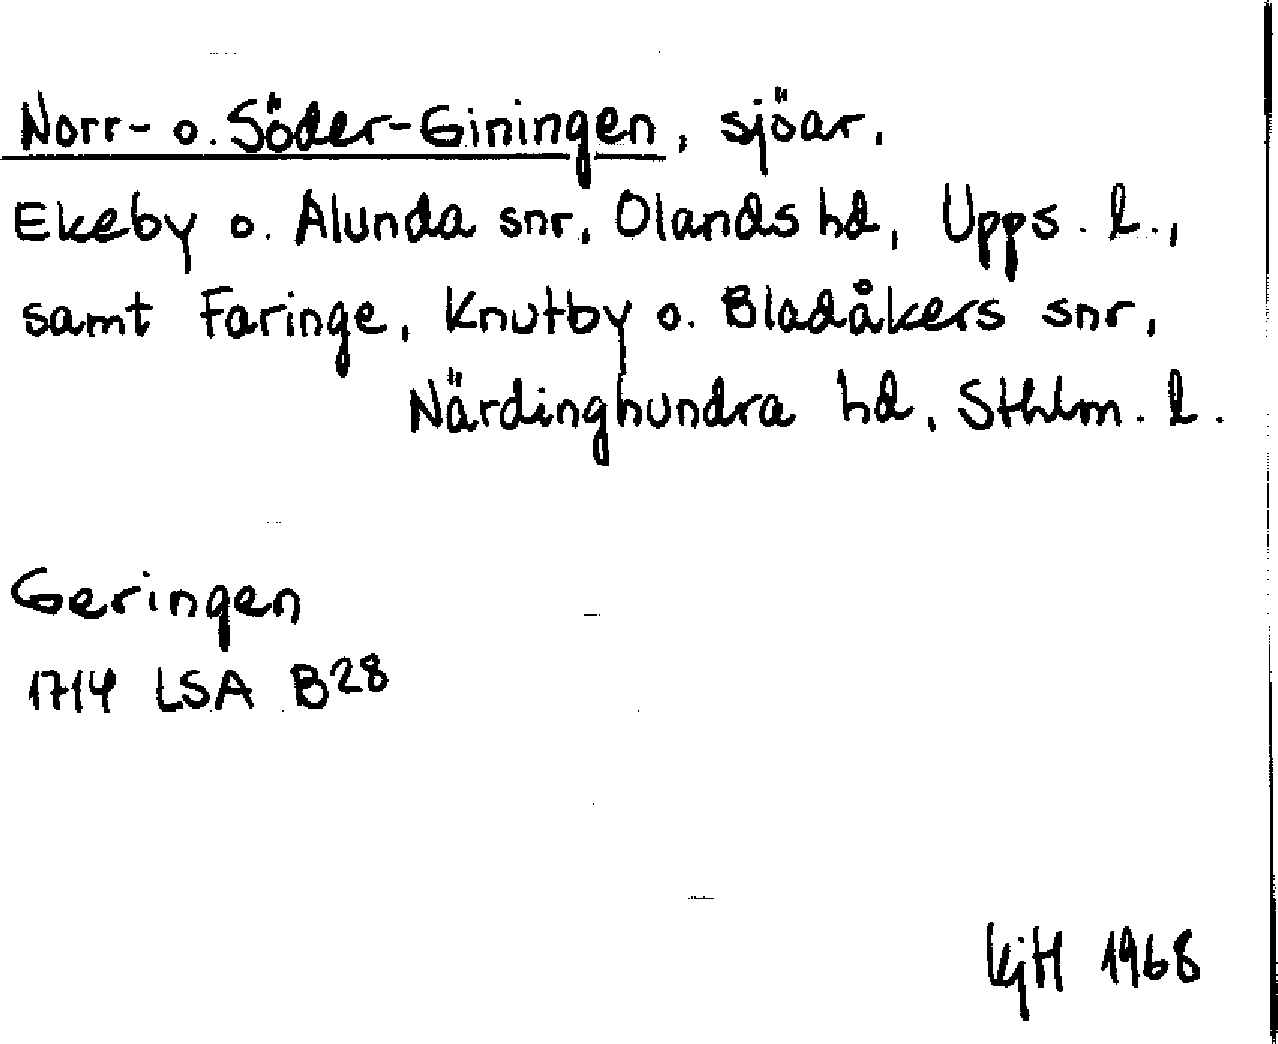 Norr- o. Söder-Giningen, sjöar.
Ekeby o. Alunda snr, Olands hd, Upps. l.,
samt Faringe, Knutby o. Bladåkers snr,
Närdinghundra hd, Sthlm. l.
Geringen
1714 LSA B28
KjH 1968